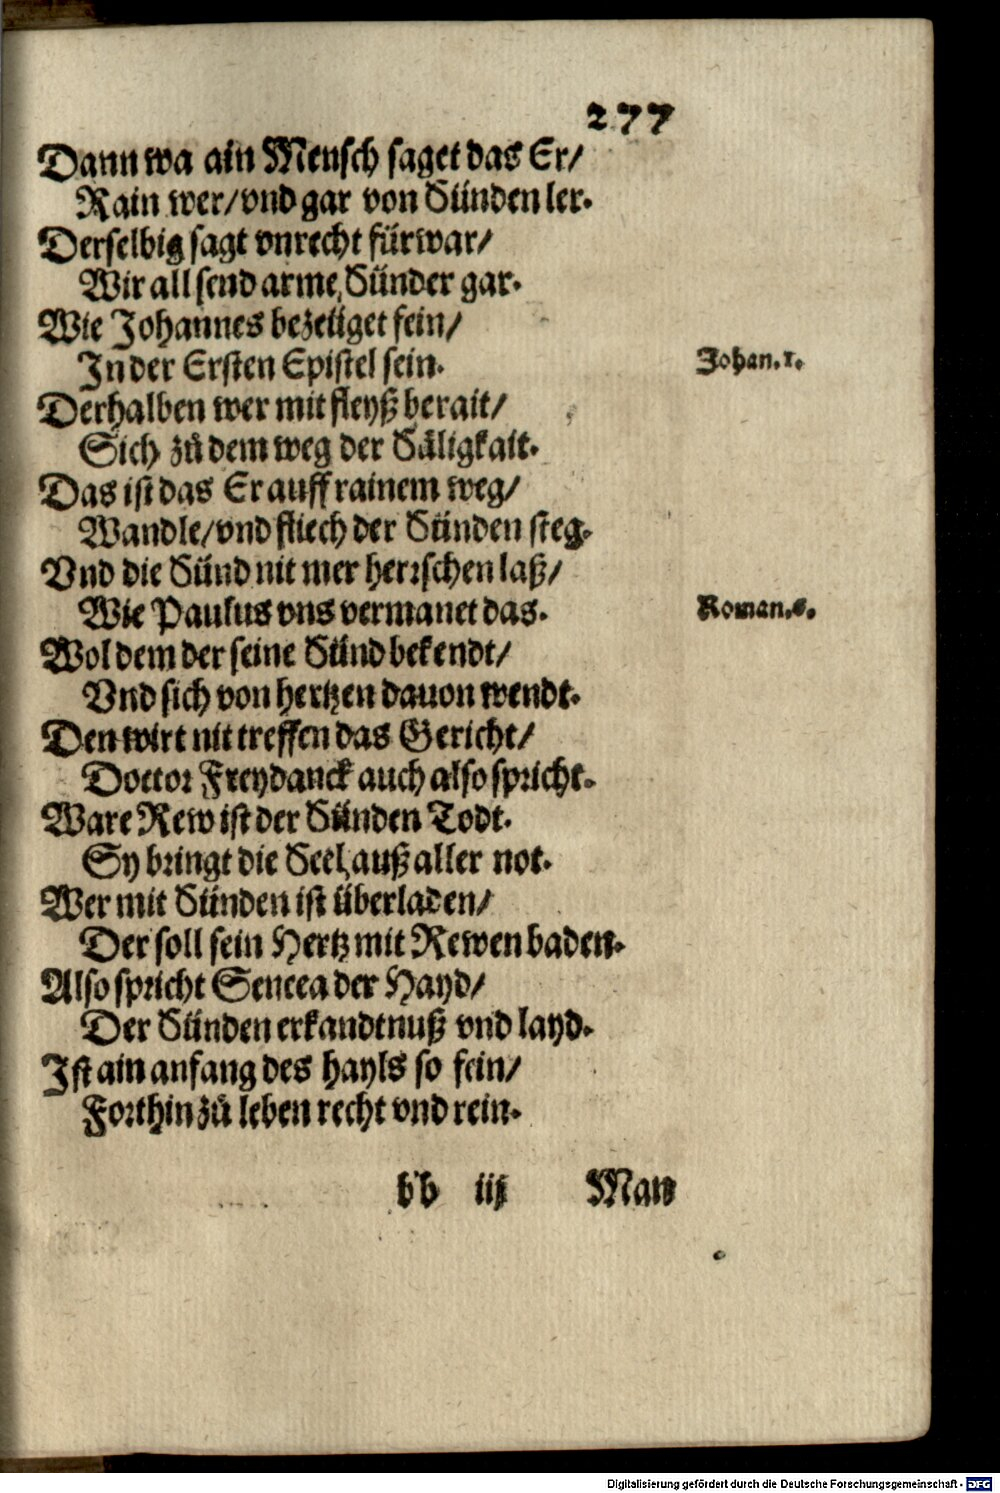 277
Dann wa ain Mensch saget das Er/
Rain wer/vnd gar von Sünden ler.
Derselbig sagt vnrecht fürwar/
Wir all send arme Sünder gar.
Wie Johannes bezeüget fein/
In der Ersten Epistel sein.
Johan.1.
Derhalben wer mit fleyß berait/
Sich zů dem weg der Säligkait.
Das ist das Er auff rainem weg/
Wandle/vnd fliech der Sünden steg.
Vnd die Sünd nit mer herrschen laß/
Wie Paulus vns vermanet das.
Roman.6.
Wol dem der seine Sünd bekendt/
Vnd sich von hertzen dauon wendt.
Den wirt nit treffen das Gericht/
Doctor Freydanck auch also spricht.
Ware Rew ist der Sünden Todt.
Sy bringt die Seel auß aller not.
Wer mit Sünden ist überladen/
Der soll sein Hertz mit Rewen baden.
Also spricht Seneca der Hayd/
Der Sünden erkandtnuß vnd layd.
Ist ain anfang des hayls so fein/
Forthin zů leben recht vnd rein.
bb iij Man
Digitalisierung gefördert durch die Deutsche Forschungsgemeinschaft - DFG